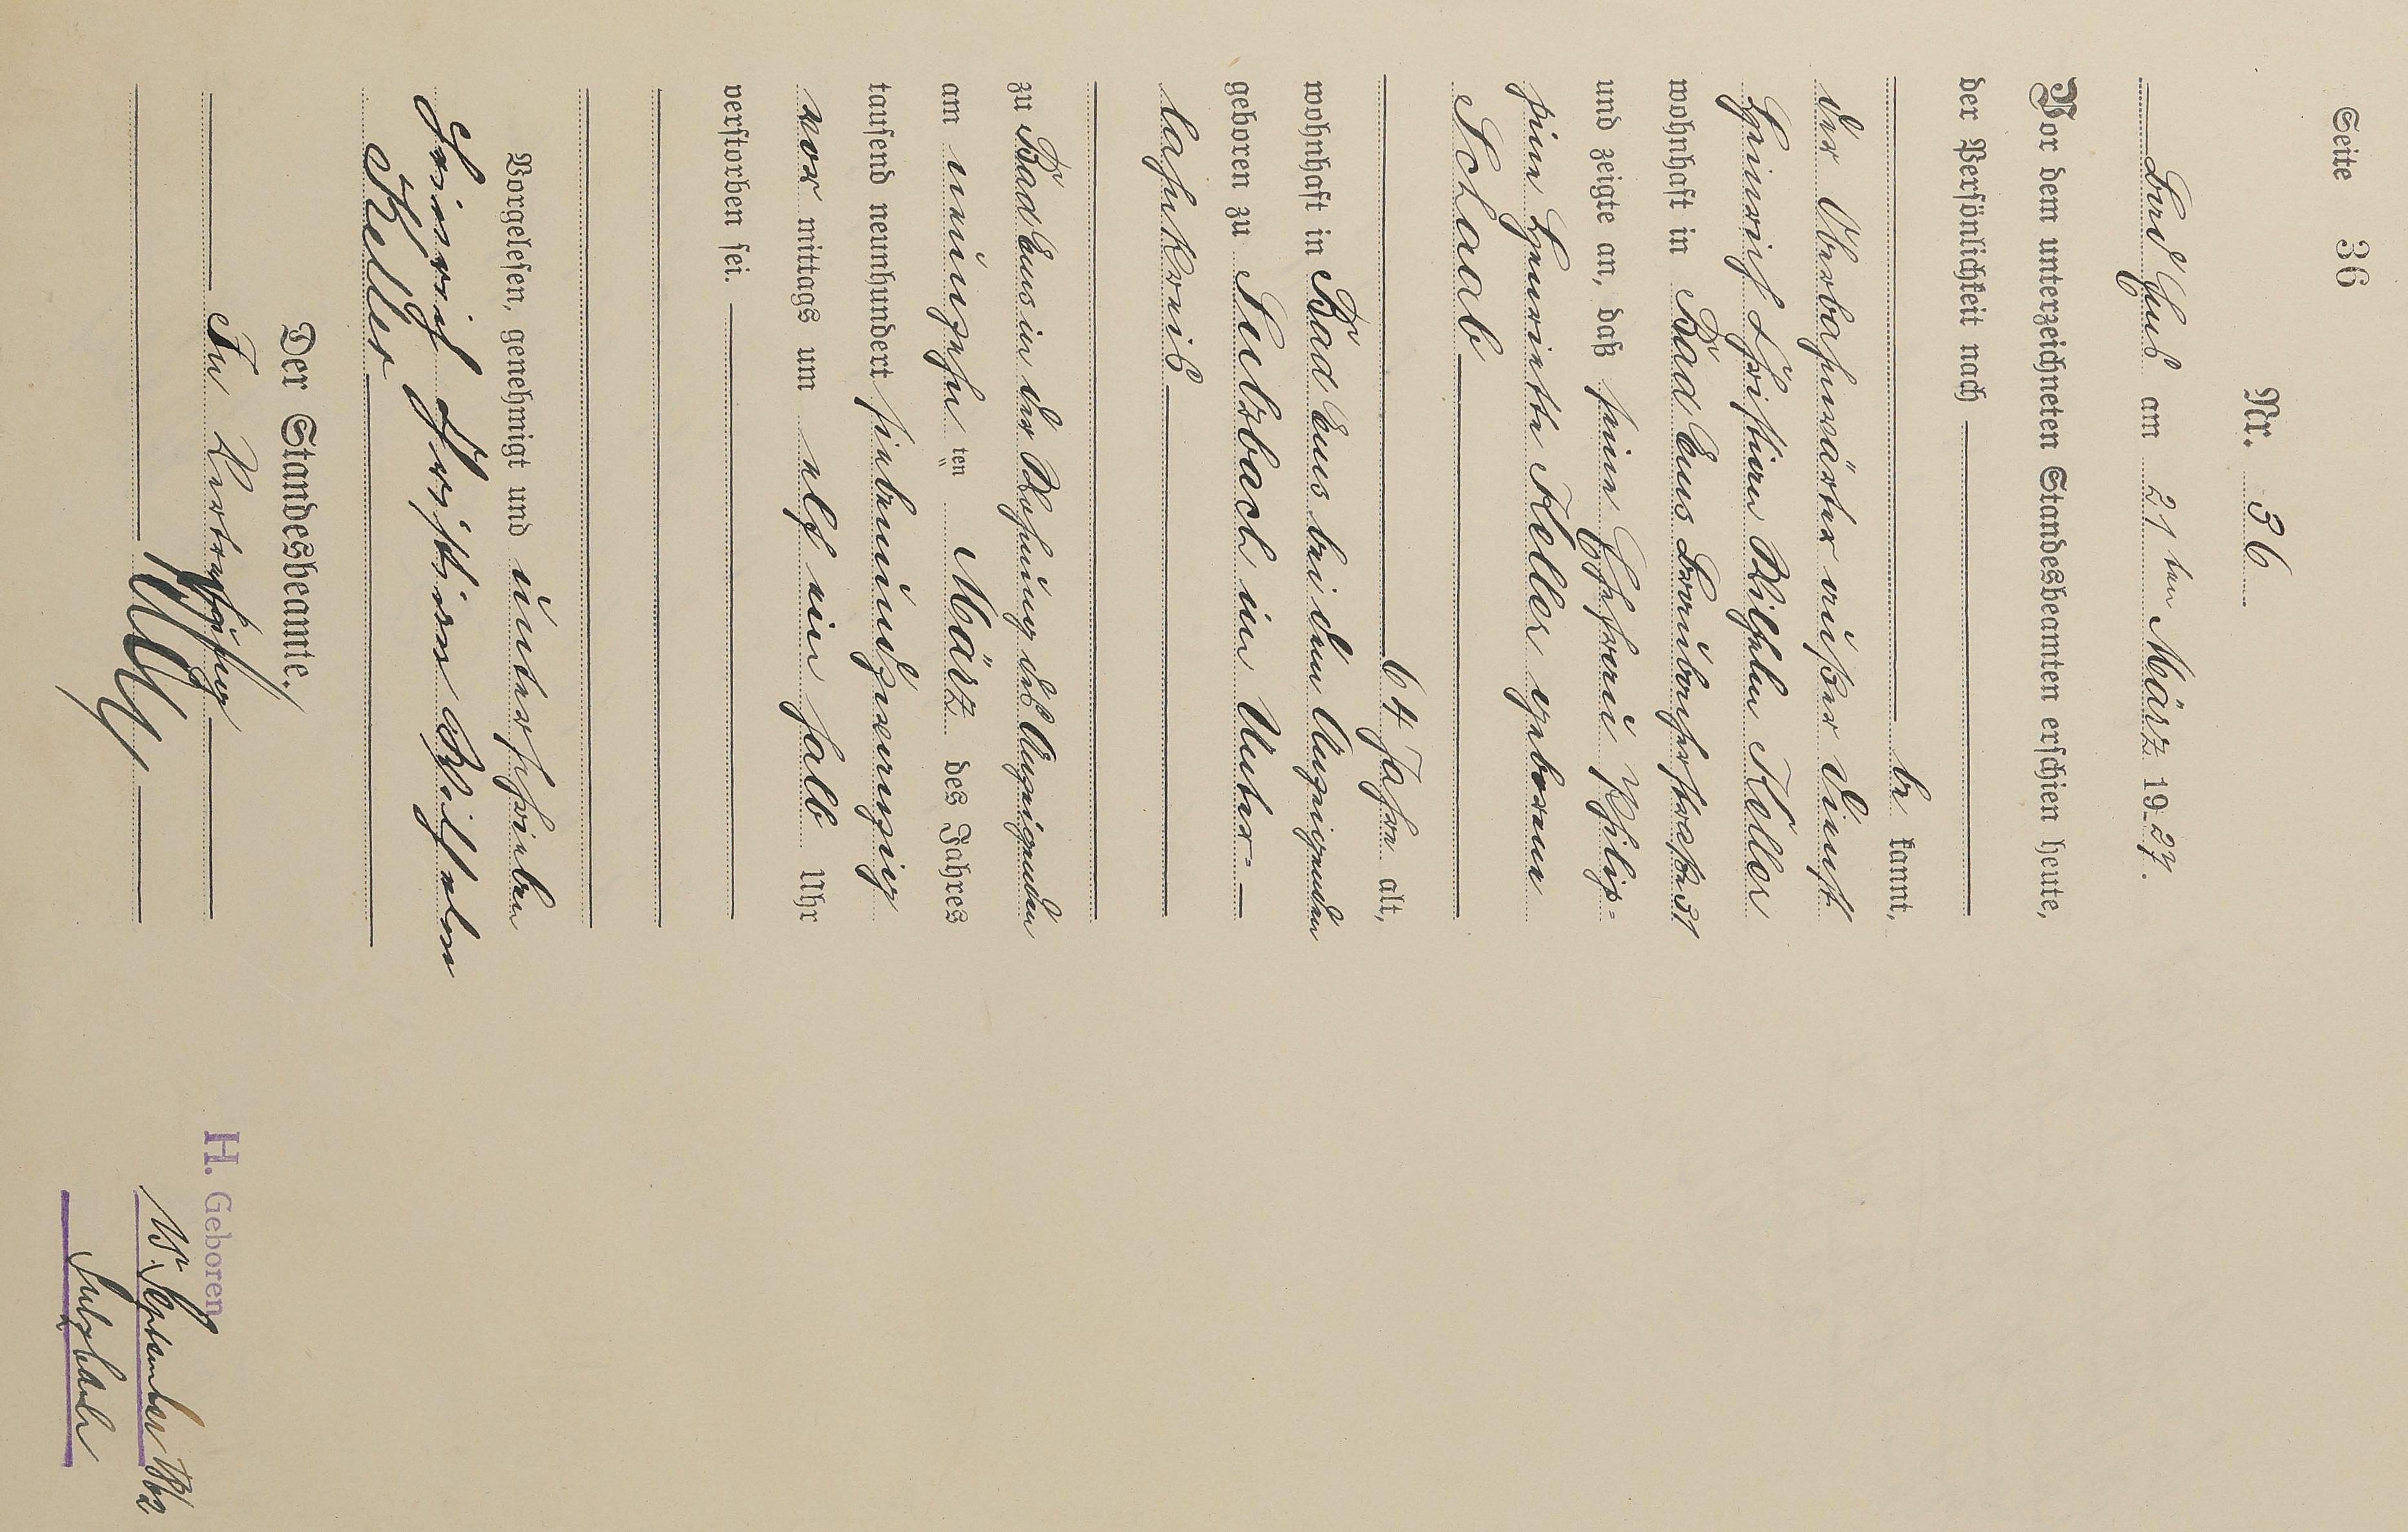 Seite 36
Nr. 36
Bad Ems am 21ten März 1927.
Vor dem unterzeichneten Standesbeamten erschien heute,
der Persönlichkeit nach
be kannt,
der Oberbahnwärter außer Dienst
Heinrich Christian Wilhelm Keller
wohnhaft in Bad Ems Braubacherstraße 31
und zeigte an, daß seine Ehefrau Philip-
pine Henriette Keller geborene
Schaab
64 Jahre alt,
wohnhaft in Bad Ems bei dem Anzeigenden
geboren zu Sulzbach im Unter-
lahnkreis
zu Bad Ems in der Wohnung des Anzeigenden
am neunzehnten März des Jahres
tausend neunhundert siebenundzwanzig
vor mittags um elf ein halb Uhr
verstorben sei.
Vorgelesen, genehmigt und unterschrieben
Heinrich Christian Wilhelm
Keller
Der Standesbeamte.
In Vertretung
H. Geboren
September 1862
Sulzbach